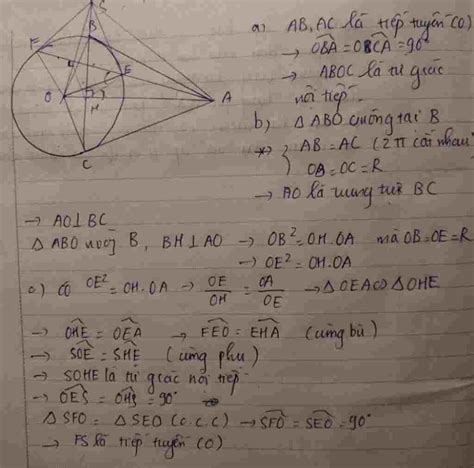 S
B
F
E
O
H
A
C
a) AB, AC là tiếp tuyến (O)
→ OBA = OBCA = 90°
→ ABOC là tứ giác
nội tiếp
b) △ ABO vuông tại B
*) AB = AC (2 tt cắt nhau)
OB = OC = R
→ AO là trung trực BC
→ AO⊥BC
△ ABO vuông B, BH⊥AO → OB² = OH.OA mà OB = OE = R
→ OE² = OH.OA
c) Có OE² = OH.OA → OE/OH = OA/OE → △OEA∽△OHE
→ OHE = OEA → FEO = EHA (cùng bù)
→ SOE = SHE (cùng phụ)
→ SOHE là tứ giác nội tiếp
→ OES = OHS = 90°
△ SFO = △ SEO (c.c.c) → SFO = SEO = 90°
→ FS là tiếp tuyến (O)